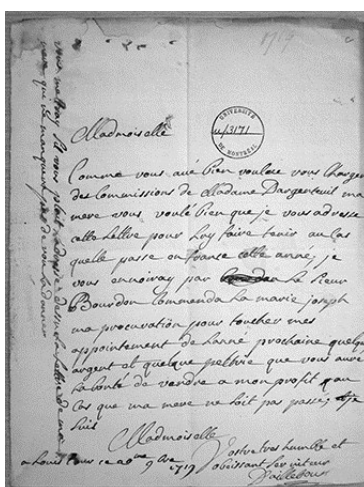 1717
Madmoiselle
UNIVERSITÉ
DE MONTRÉAL
u/3171
Comme vous avé bien vouleue vous charger
des Commissions de Madame Dargenteuil ma
mere vous voulé bien que je vous adresse
cette Lettre pour Luy faire tenir au cas
quelle passe en franse cette anné; je
vous envoiray par Le sieur
Bourdon Commenda La marie joseph
ma procuration pour toucher mes
appointement de Lanné prochaine quelque
argent et quelque peltrie que vous auré
La bonté de vendre a mon profit au
Cas que ma mere ne soit pas passé; je
suis
Madmoiselle
Vostre tres humble et
obeissant serviteur
a Louis Bour ce 9bre 1719
Dailleboust